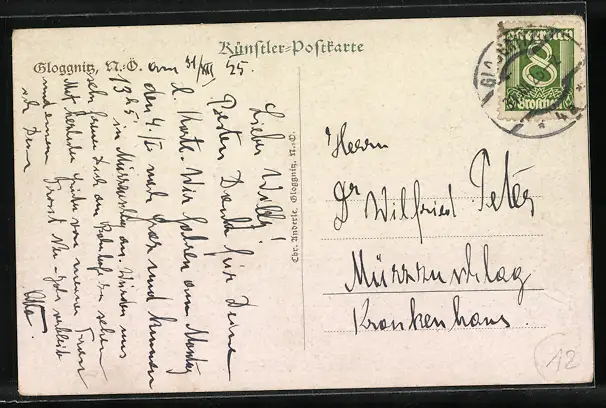 Künstler-Postkarte
Gloggnitz, N.-Ö. am 31/XII 25.
Lieber Willy!
Besten Dank für Deine
l. Karte. Wir fahren am Montag
den 4./I. nach Graz und kommen
1325 in Mürzzuschlag an. Würden uns
sehr freuen Dich am Bahnhof zu sehen
Mit herzlichen Grüßen von meiner Frau
und einem Prosit Neujahr verbleibt
Dein
Otto.
Chr. Anderle, Gloggnitz, N.-Ö.
Österreich
8
Groschen
Herrn
Dr Wilfried Peter
Mürzzuschlag
Krankenhaus.
12